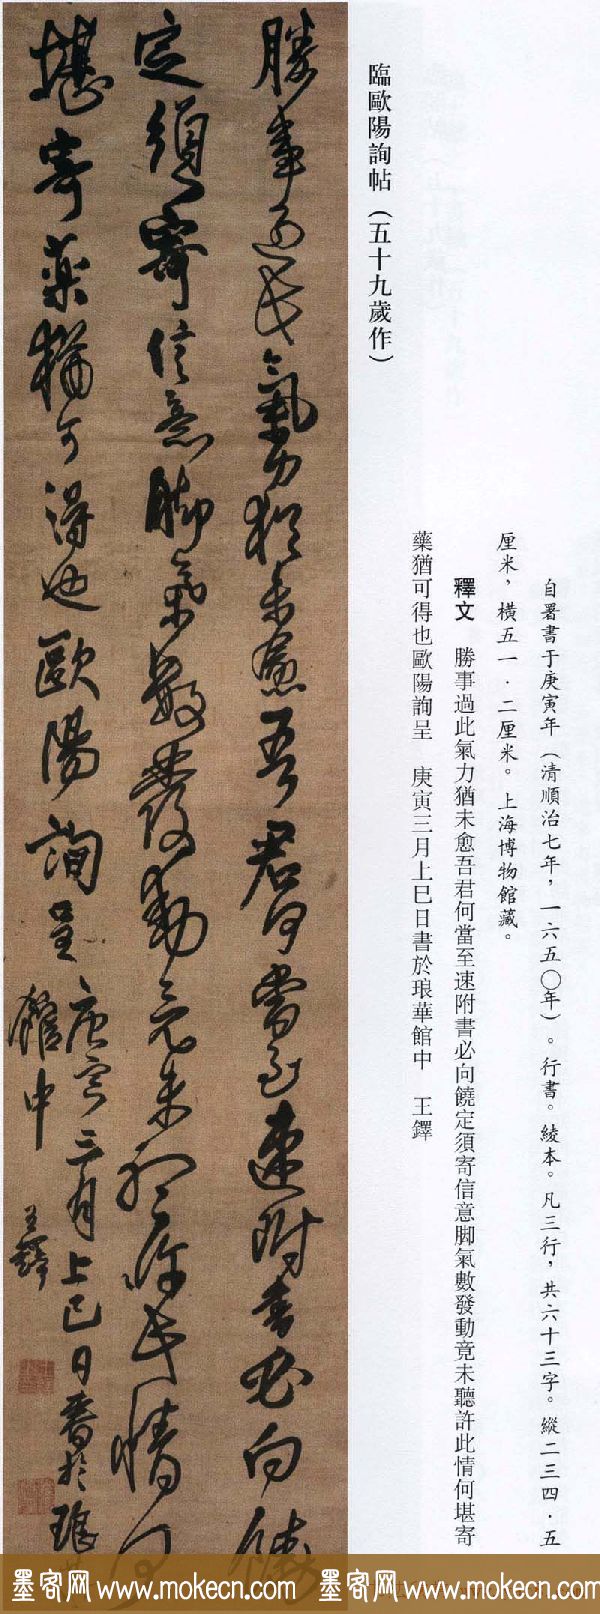 臨歐陽詢帖（五十九歲作）
自署書于庚寅年（清順治七年，一六五〇年）。行書。綾本。凡三行，共六十三字。縱二三四·五
厘米，橫五一·二厘米。上海博物館藏。
釋文　勝事過此氣力猶未愈吾君何當至速附書必向饒定須寄信意脚氣數發動竟未聽許此情何堪寄
藥猶可得也歐陽詢呈　庚寅三月上巳日書於琅華館中　王鐸
勝事過此氣力猶未愈吾君何當至速附書必向饒
定須寄信意脚氣數發動竟未聽許此情何
堪寄藥猶可得也歐陽詢呈　庚寅三月上巳日書於琅華
館中　王鐸
墨客网 www.mokecn.com 墨客网 www.mokecn.com